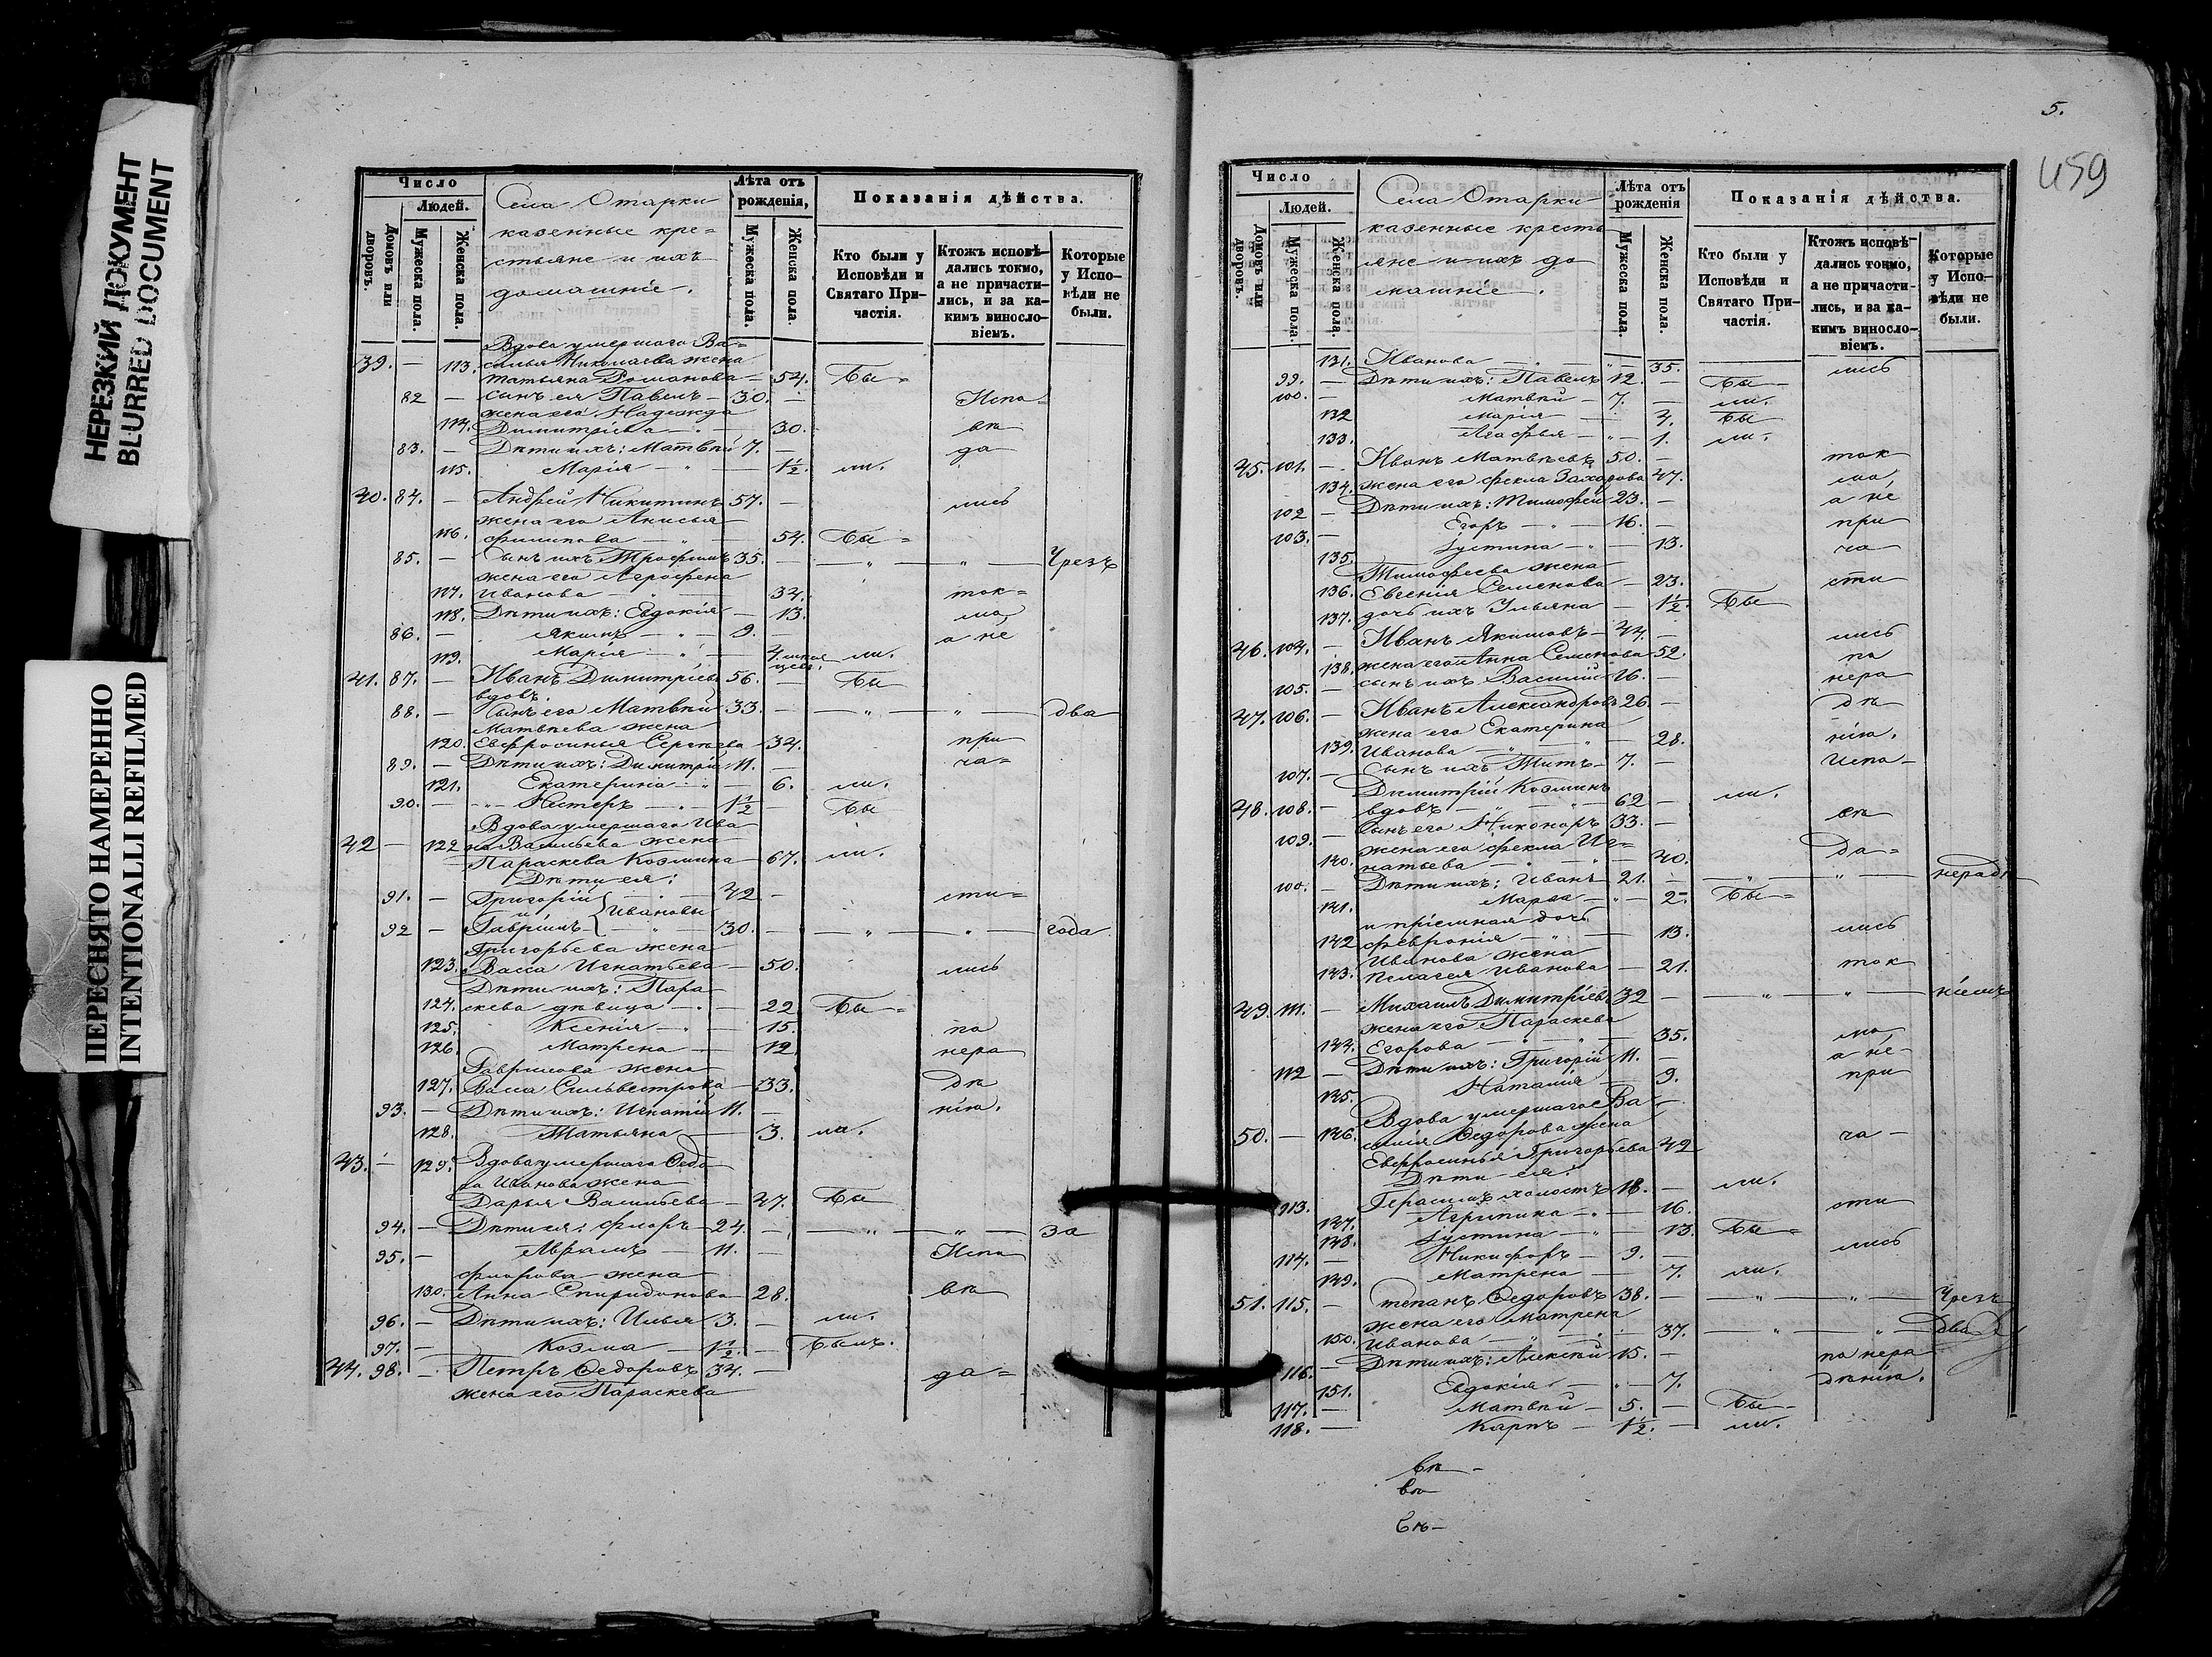 НЕРЕЗКИЙ ДОКУМЕНТ
BLURRED DOCUMENT
ПЕРЕСНЯТО НАМЕРЕННО
INTENTIONALLI REFILMED
Число
Людей.
Домовъ или дворовъ.
Мужеска пола.
Женска пола.
Села Отарки
казенные кре=
стьяне и ихъ
домашніе.
Лѣта отъ рожденія,
Мужеска пола.
Женска пола.
Показанія дѣйства.
Кто были у Исповѣди и Святаго Причастія.
Ктожъ исповѣдались токмо, а не причастились, и за какимъ винословіемъ.
Которые у Исповѣди не были.
Вдова умершаго Ва=
39. — 113. силья Николаева жена
Татьяна Романова — 54. Бы=
82 — сынъ ея Павелъ — 30. — Испо=
жена его Надежда
114. Димитріева — " — 30. вѣ
83. — Дѣти ихъ: Матвѣй 7. — да
115. Марія — " — 1½. ли.
40. 84. — Андрей Никитинъ 57. — лись
жена его Анисья
116. Филипова — " — 54. Бы=
85. — Сынъ ихъ Трофимъ 35. — " — " — Чрезъ
жена его Агрофена
117. Иванова — " 34. ток=
118. Дѣти ихъ: Евдокія — 13. мо
86. — Якимъ — " — 9. — а не
119. Марія — " — 4. ли.
41. 87. — Иванъ Димитріевъ 56. — Бы
вдовъ.
88. — Сынъ его Матвѣй 33. — " — " — два
Матвѣева жена
120. Евфросинья Сергѣева — 34. при
89. — Дѣти ихъ: Димитрій 11. — ча=
121. Екатерина — " — 6. ли.
90. — " — Нестеръ — " — 1½ — Бы
Вдова умершаго Ива
42 — 122 на Васильева жена
Параскева Козмина — 67. ли.
Дѣти ея:
91. — Григорій — " — 42 — сти=
и } Ивановы
92 — Гавріилъ — " — 30. — " — " — года
Григорьева жена
123. Васса Игнатьева — 50. лись
Дѣти ихъ: Пара
124. скева дѣвица — " — 22 Бы=
125. Ксенія — " — 15. по
126. Матрена — 12. нера
Гаврилова жена
127. Васса Сильвестрова — 33. дѣ
93. — Дѣти ихъ: Игнатій 11. — нію.
128. Татьяна — 3. ли.
43. — 129. Вдова умершаго Ѳедо
ра Иванова жена
Дарья Васильева — 47. Бы
94. — Дѣти ея: Флоръ — 24. — " — " — за
95. — Аврамъ — 11. — Испо
Флорова жена
130. Анна Спиридонова — 28. вѣ
96. — Дѣти ихъ: Илья 3. — ли.
97. — Козма — 1½. — Былъ.
44. 98. — Петръ Ѳедоровъ 34. — да=
жена его Параскева
5.
459
Число
Людей.
Домовъ или дворовъ.
Мужеска пола.
Женска пола.
Села Отарки
казенные кресть
яне и ихъ до
машніе.
Лѣта отъ рожденія
Мужеска пола.
Женска пола.
Показанія дѣйства.
Кто были у Исповѣди и Святаго Причастія.
Ктожъ исповѣдались токмо, а не причастились, и за какимъ винословіемъ.
Которые у Исповѣди не были.
131. Иванова — " — 35. лись
99. — Дѣти ихъ: Павелъ 12. — Бы—
100. — Матвѣй — 7. — ли.
132 Марія — 4. Бы
133. Агафья — " — 1. ли.
45. 101. — Иванъ Матвѣевъ 50. — ток
134. жена его Фекла Захарова 47. мо
102 — Дѣти ихъ: Тимофей 23. — а не
103. — Егоръ — " — 16. — при
135. Іустина — " — 13. ча
Тимофеева жена
136. Евгенія Семенова — 23. сти
137. дочь ихъ Ульяна — 1½. Бы
46. 104. — Иванъ Якимовъ — 44. — лись
138. жена его Анна Семенова 52. по
105. — сынъ ихъ Василій 16. — нера
47. 106. — Иванъ Александровъ 26 — дѣ
жена его Екатерина
139. Иванова — " — " — 28. нію.
107. — Сынъ ихъ Титъ — 7. — Испо—
Димитрій Козминъ
48. 108. — вдовъ — " — " — 62 — ли.
109. — Сынъ его Никоноръ 33. — вѣ
жена его Фекла Иг=
140. натьева — " — " — 40. да=
100. — Дѣти ихъ: Иванъ 21. — " — " — нерадѣ
141. Марѳа — " — 2. Бы=
и пріемная дочь
142 Февронія — " — 13. лись
Иванова жена
143. Пелагея Иванова — 21. ток
49. 111. — Михаилъ Димитріевъ 39 — " — " — ніемъ
жена его Параскева
144. Егорова — " — " — 35. мо
112 — Дѣти ихъ: Григорій 11. — а не
145. Наталія — 9. при
Вдова умершаго Ва
50. — 146. силія Ѳедорова жена ча—
Евфросинья Григорьева 42
Дѣти ея:
113. — Герасимъ холостъ 18. — ли.
147. Агрипина — " — 16. сти
148. Іустина — " — 13. Бы=
114. — Никифоръ — 9. — лись
149. Матрена — 7. ли.
51. 115. — Степанъ Ѳедоровъ 38. — " — " — Чрезъ
жена его Матрена
150. Иванова — " — " — 37. — " — " — два
116. — Дѣти ихъ: Алексѣй 15. — по нера
151. Евдокія — " — 7. дѣнію.
117. — Матвѣй — 5. — Бы—
118. — Карпъ — 1½. — ли.
вѣ—
вѣ
вѣ—